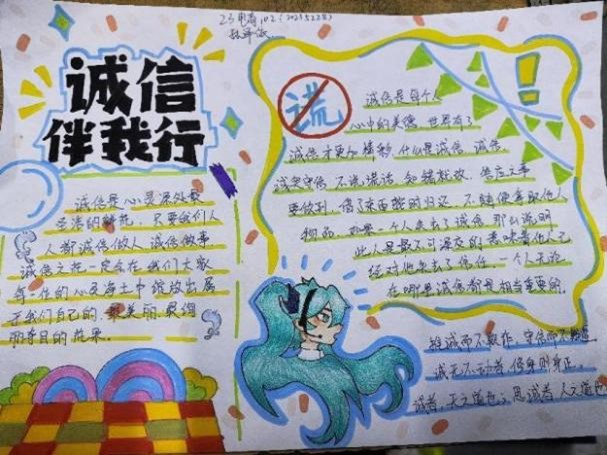 23电商102（2023522
诚信
伴我行
诚信是心灵深处最
圣洁的鲜花，只要我们人
人都诚信做人 诚信做事
诚信之花一定会在我们大家
每一位的心灵海土中绽放出属
于我们自己的 最美丽 最绚
丽夺目的花果。
谎
诚信是每个人
心中的美德 世界有了
诚信才更加精彩 什么是诚信 诚信
诚实守信 不说谎话 知错就改 答应之事
要做到，借了东西按时归还 不随便拿取他人
物品 如果一个人失去了诚信 那么说明
此人是最不可深交的 意味着他人已
经对他失去了信任。一个人无论
在哪里诚信都是相当重要的。
诚而不欺诈，守信而不
诚无不动者，修身则身正。
诚者，天之道也；思诚者 人之道也